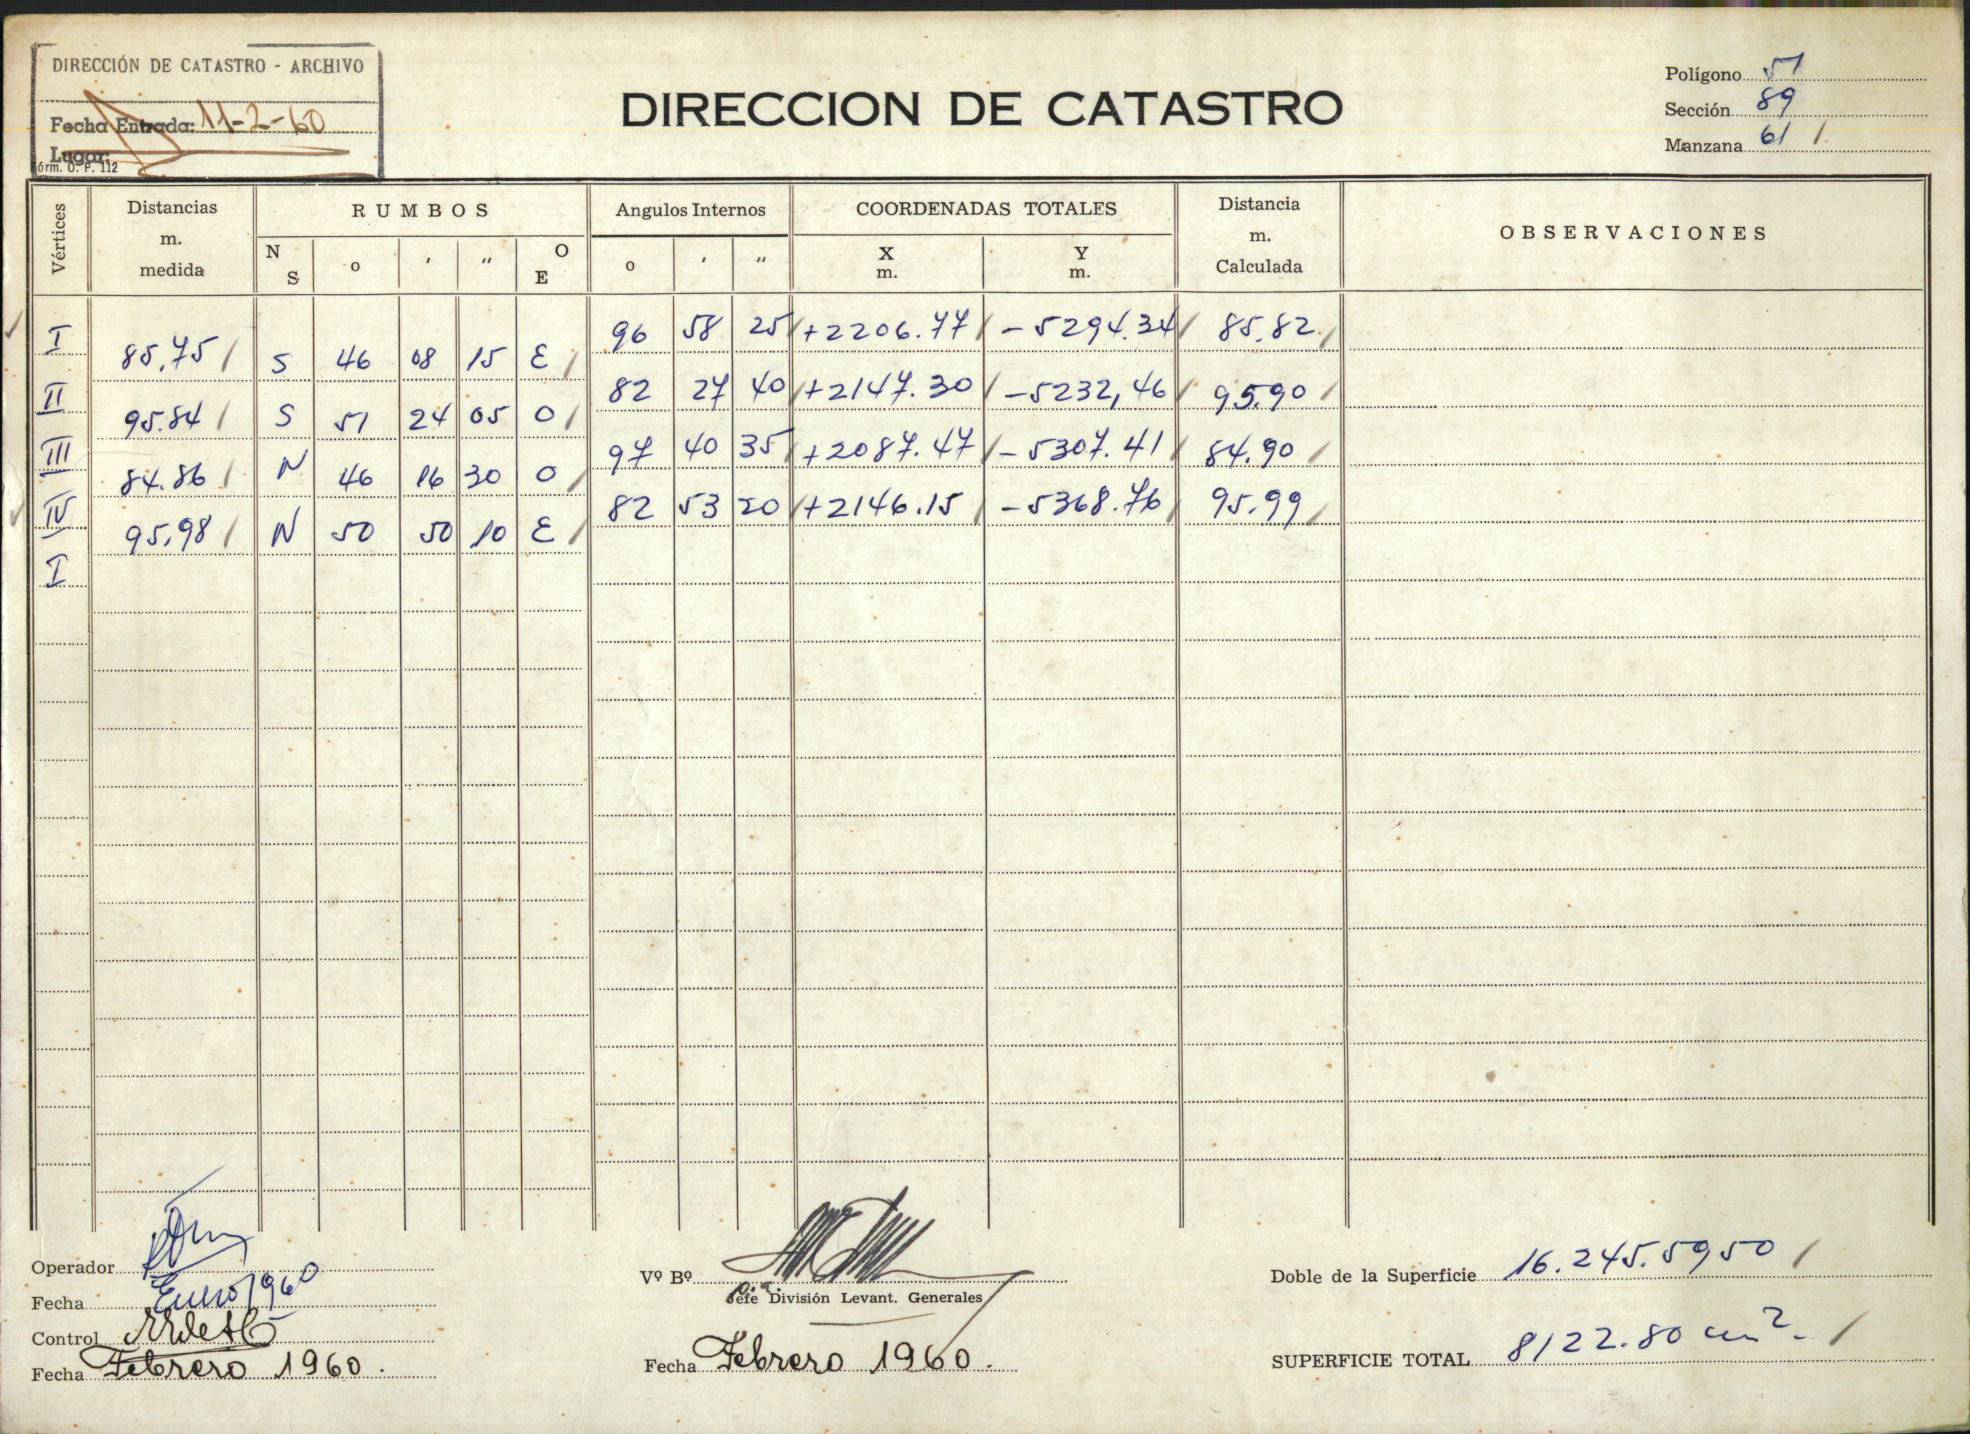 DIRECCIÓN DE CATASTRO - ARCHIVO
Fecha Entrada: 11-2-60
Lugar:
Fórm. O. P. 112
DIRECCION DE CATASTRO
Polígono 51
Sección 89
Manzana 61 /
Vértices
Distancias m. medida
RUMBOS
N S
o ' "
O E
Angulos Internos
o ' "
COORDENADAS TOTALES
X m.
Y m.
Distancia m. Calculada
OBSERVACIONES
I 96 58 25 / +2206.77 / -5294.34 / 85.82 /
85.75 / S 46 08 15 E /
II 82 27 40 / +2147.30 / -5232,46 / 95.90 /
95.84 / S 51 24 05 O /
III 97 40 35 / +2087.47 / -5307.41 / 84.90 /
84.86 / N 46 16 30 O /
IV 82 53 20 / +2146.15 / -5368.76 / 95.99 /
95.98 / N 50 50 10 E /
I
Operador
Fecha Enero/960
Control
Fecha Febrero 1960.
Vº Bº
Jefe División Levant. Generales
Fecha Febrero 1960.
Doble de la Superficie 16.245.5950 /
SUPERFICIE TOTAL 8122.80 cm². /